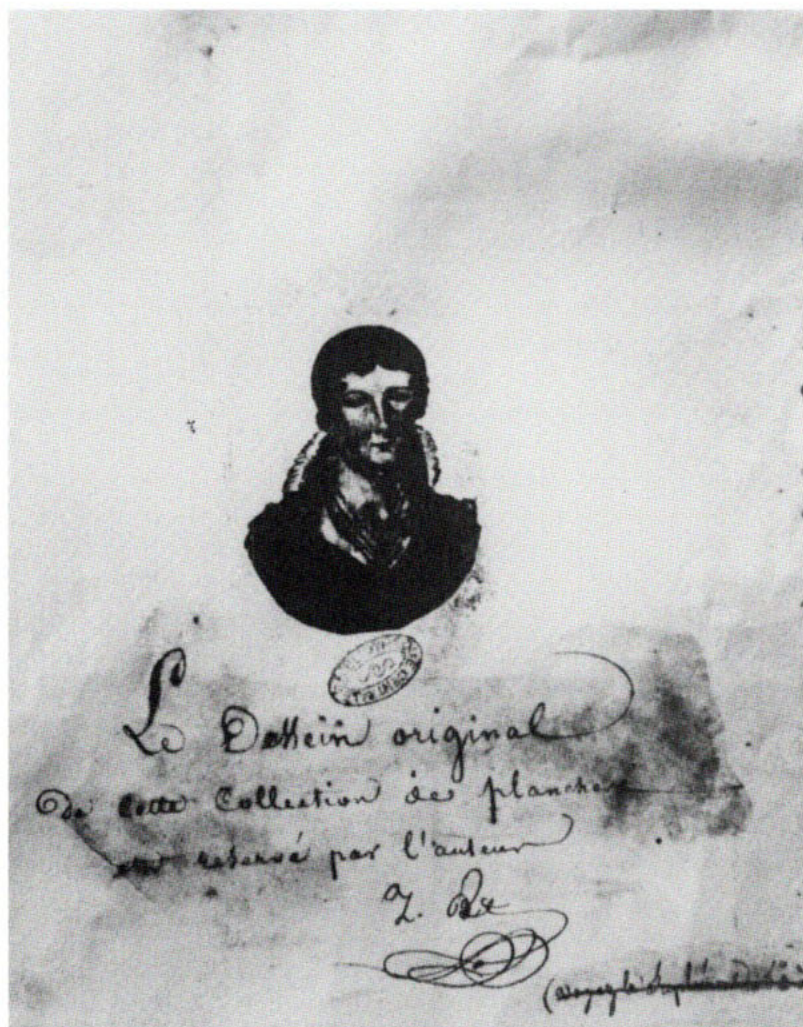 Le Dessein original
de cette Collection de planches
est reservé par l'auteur
(voyez le